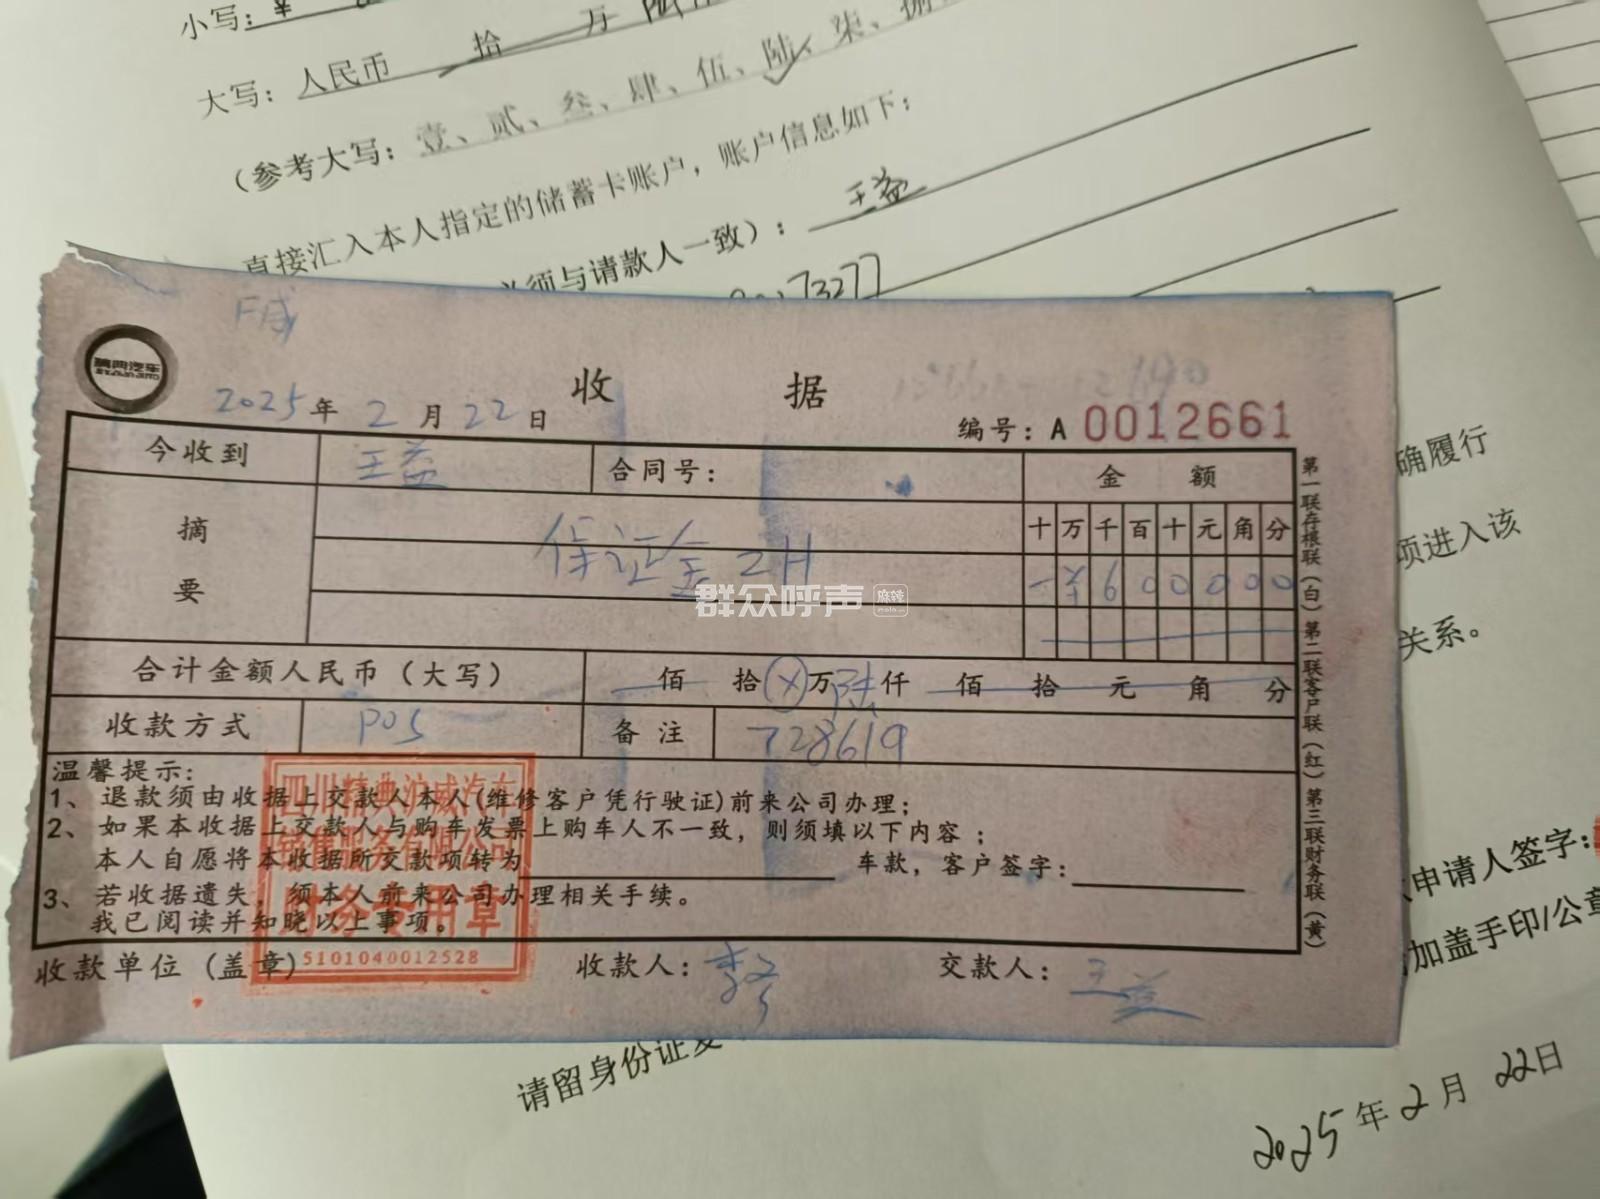 小写：¥
大写：人民币 拾 万 陆
（参考大写：壹、贰、叁、肆、伍、陆、柒、捌
直接汇入本人指定的储蓄卡账户，账户信息如下：
必须与请款人一致）： 王益
73277
精典汽车
收 据
2025年 2 月 22 日
编号：A 0012661
今收到 王益 合同号： 金 额
摘要
十 万 千 百 十 元 角 分
保证金 ZH
¥ 6 0 0 0 0 0
合计金额人民币（大写） 佰 拾 ⓧ 万 陆 仟 佰 拾 元 角 分
收款方式 POS 备注 728619
温馨提示：
1、退款须由收据上交款人本人(维修客户凭行驶证)前来公司办理；
2、如果本收据上交款人与购车发票上购车人不一致，则须填以下内容；
本人自愿将本收据所交款项转为 车款，客户签字：
3、若收据遗失，须本人前来公司办理相关手续。
我已阅读并知晓以上事项。
收款单位（盖章） 收款人： 交款人：王益
四川精典沪威汽车
销售服务有限公司
财务专用章
5101040012528
第一联存根联（白）第二联客户联（红）第三联财务联（黄）
群众呼声 麻辣
确履行
项进入该
关系。
申请人签字：
加盖手印/公章
请留身份证复
2025年2月22日